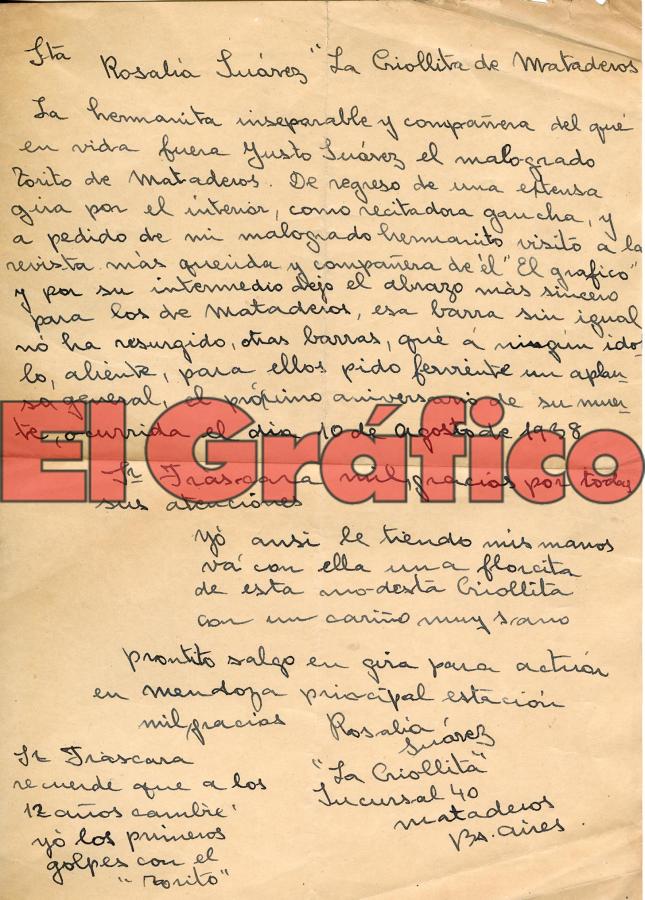 Sta Rosalía Suárez "La Criollita de Mataderos
La hermanita inseparable y compañera del qué
en vida fuera Yusto Suárez el malogrado
Torito de Mataderos. De regreso de una extensa
gira por el interior, como recitadora gaucha, y
a pedido de mi malogrado hermanito visitó a la
revista más querida y compañera de él "El grafico"
y por su intermedio dejo el abrazo más sincero
para los de Mataderos, esa barra sin igual
nó ha resurgido, otras barras, qué á ningún ido-
lo, aliente, para ellos pido ferviente un aplau-
so general, el próximo aniversario de su muer-
te, ocurrida el dia 10 de Agosto de 1938
El Gráfico
Sr Frascara mil gracias por todas
sus atenciones
yó ansi le tiendo mis manos
vá con ella una florcita
de esta modesta Criollita
con un cariño muy sano
prontito salgo en gira para actuár
en Mendoza principal estación
mil gracias Rosalía
Suárez
"La Criollita"
Sucursal 40
Mataderos
Bs. Aires.
Sr Frascara
recuerde que a los
12 años cambie
yó los primeros
golpes con el
"Torito"